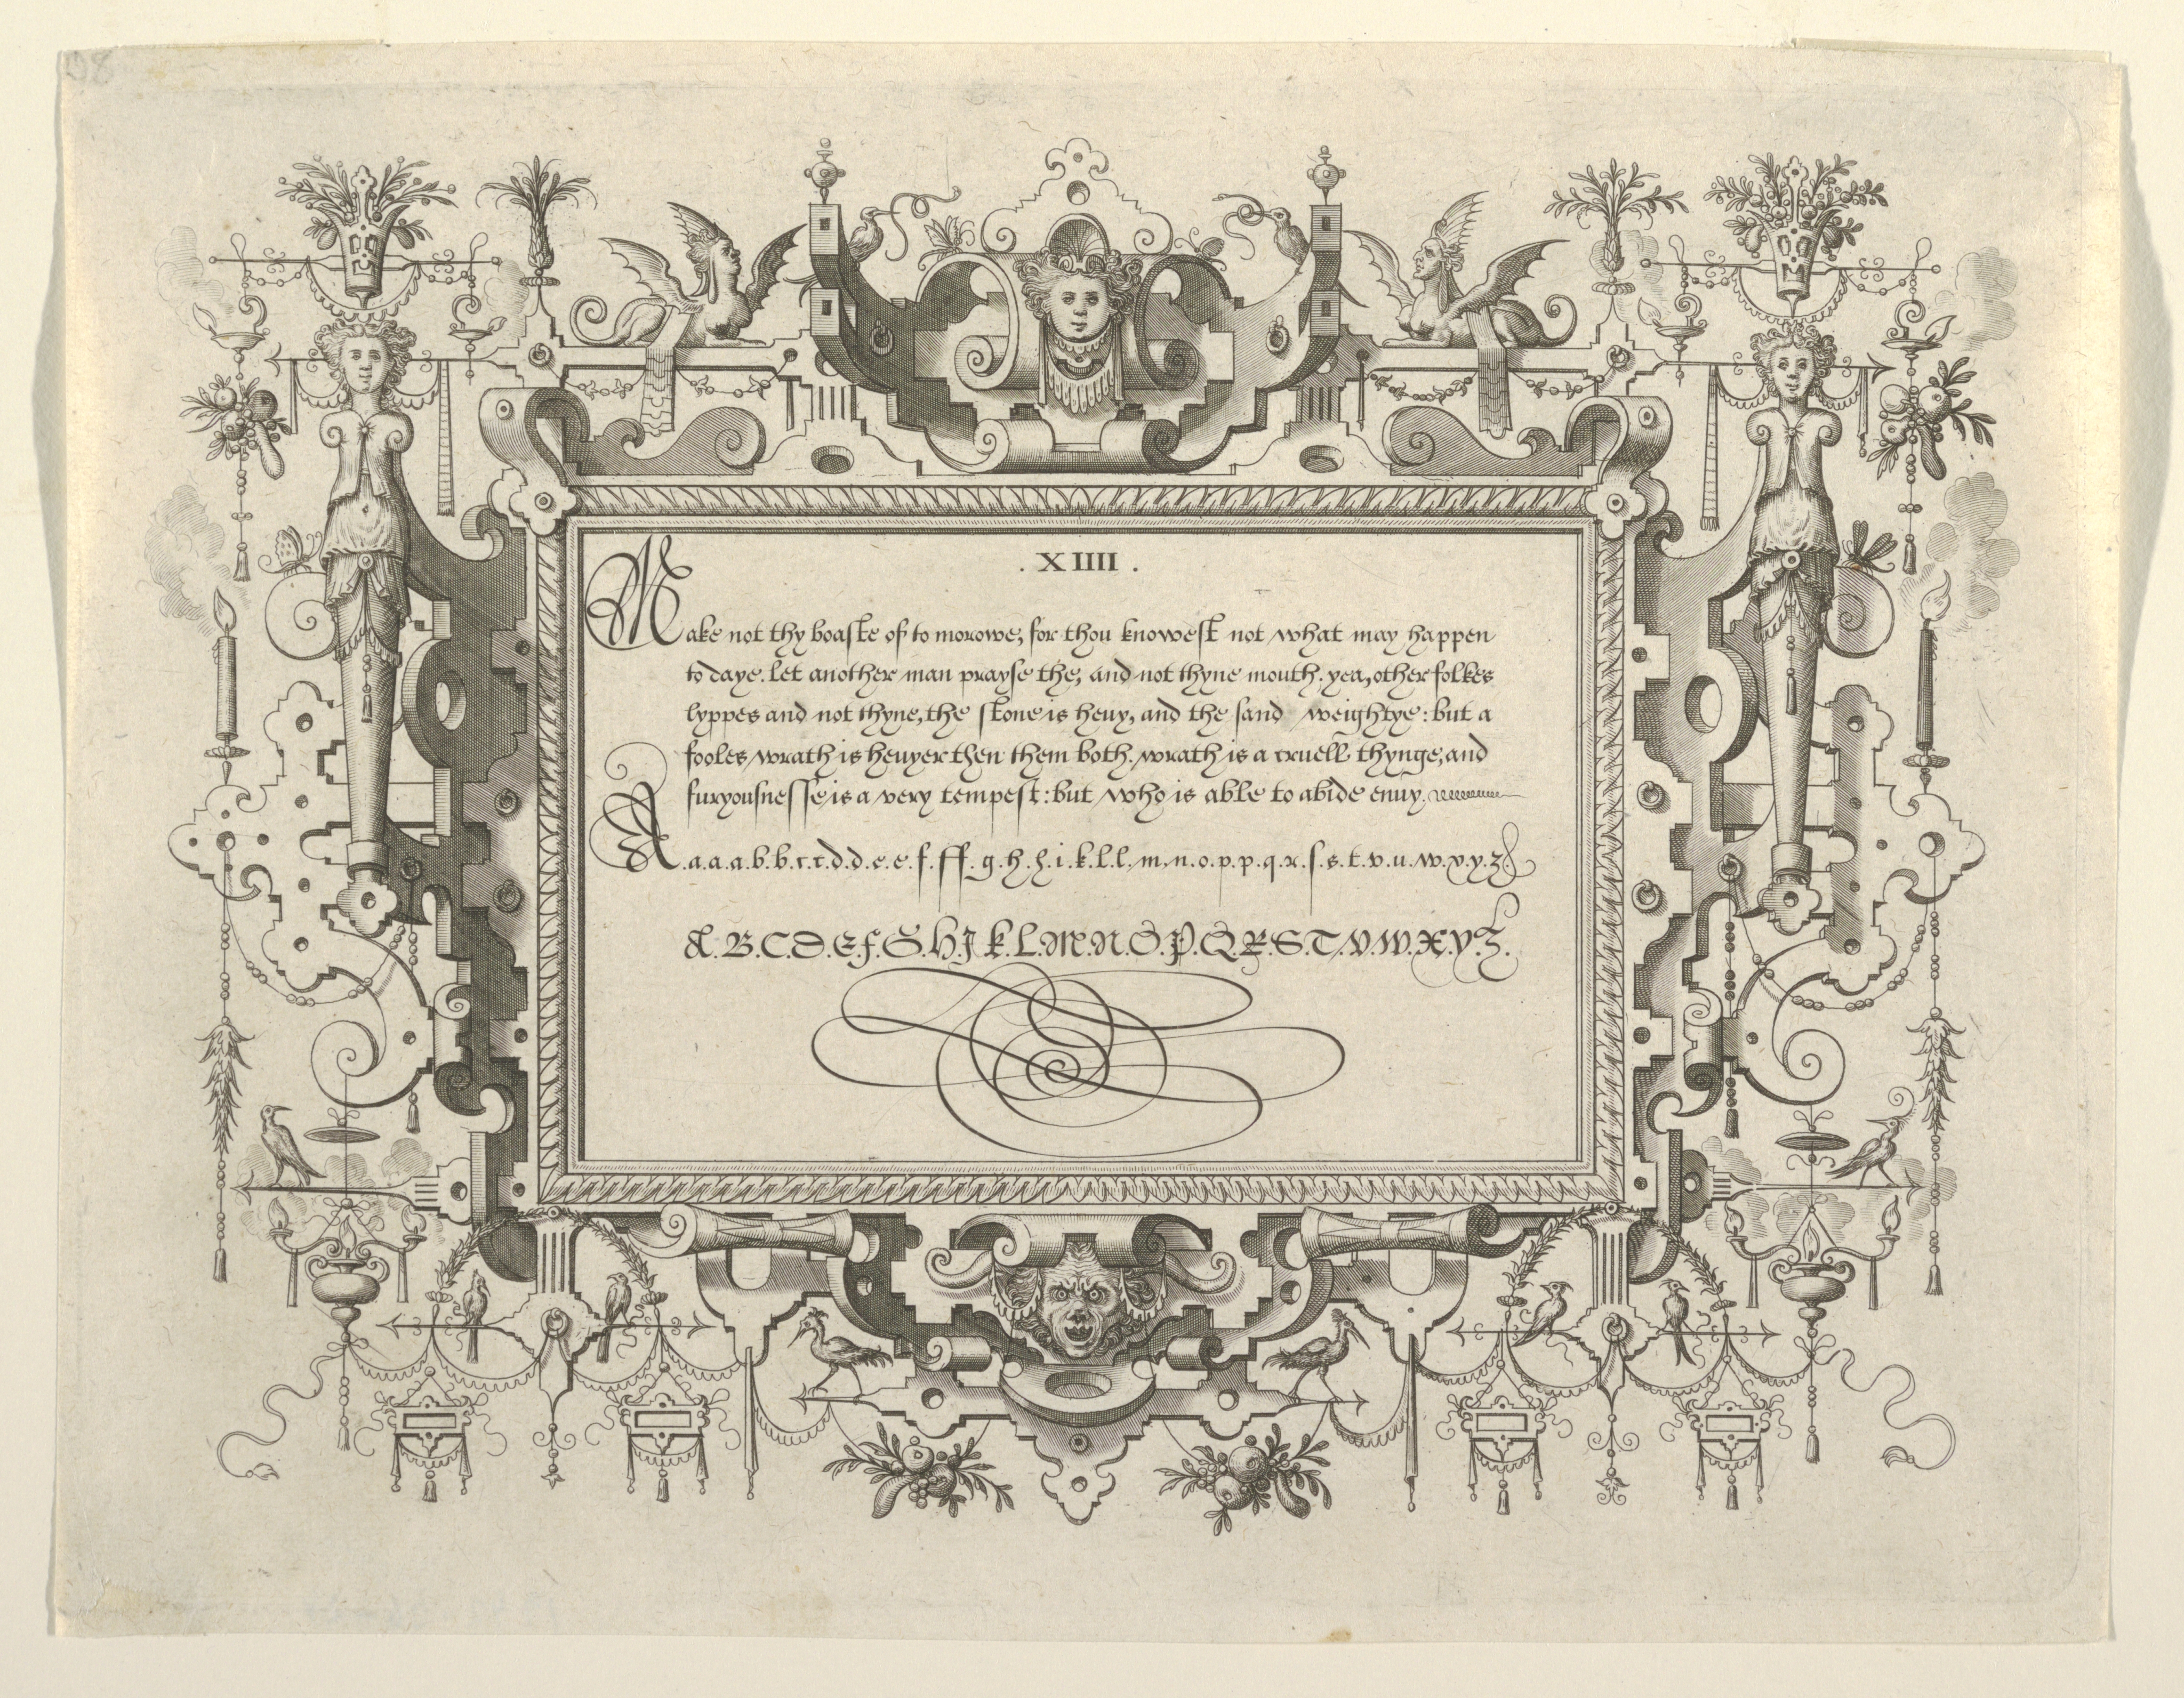 . XIIII .
Make not thy boaste of to morowe, for thou knowest not what may happen
to daye. let another man prayse the, and not thyne mouth. yea, other folkes
lyppes and not thyne, the stone is heuy, and the sand weightye: but a
fooles wrath is heuyer then them both. wrath is a cruell thynge, and
furyousnesse is a very tempest: but who is able to abide enuy.
A.a.a.a.b.b.c.c.d.d.e.e.f.ff.g.h.h.i.k.l.l.m.n.o.p.p.q.r.s.s.t.v.u.w.x.y.z
A.B.C.D.E.F.G.H.I.K.L.M.N.O.P.Q.R.S.T.V.W.X.Y.Z.